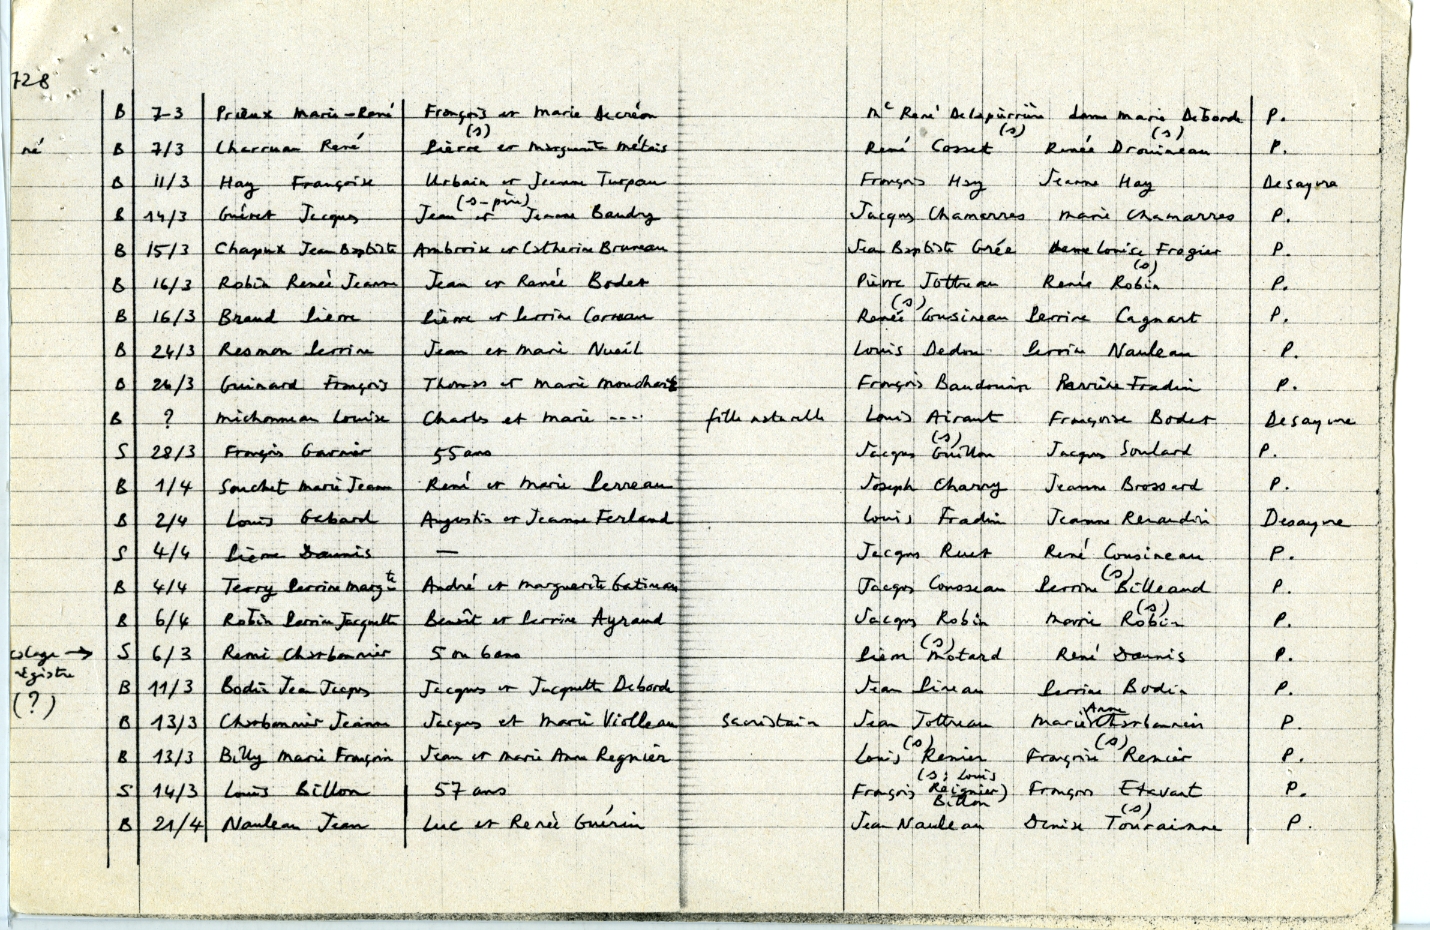 728
B 7-3 Prieux Marie-René François et Marie Decréon Me René Delaperrière dame Marie Deborde P.
né B 7/3 Charruau René Pierre (s) et Marguerite Métais René Cosset (s) Renée Drouineau (s) P.
B 11/3 Hay Françoise Urbain et Jeanne Turpau François Hay Jeanne Hay Desayvre
B 14/3 Guéret Jacques Jean (s-père) et Jeanne Baudry Jacques Chamarres Marie Chamarres P.
B 15/3 Chapeux Jean Baptiste Ambroise et Catherine Bruneau Jean Baptiste Grée Louise Frogier P.
B 16/3 Robin Renée Jeanne Jean et Renée Bodet Pierre Jottreau Renée Robin (s) P.
B 16/3 Braud Pierre Pierre et Perrine Corneau Renée (s) Cousineau Perrine Cagnart P.
B 24/3 Resmon Perrine Jean et Marie Nueil Louis Dedou Perrine Nauleau P.
B 26/3 Guinard François Thomas et Marie Moucharte François Baudouin Perrine Fradin P.
B ? Michonneau Louise Charles et Marie ---- fille naturelle Louis Airaut Françoise Bodet Desayvre
S 28/3 François Garnier 55 ans Jacques (s) Guillon Jacques Soulard P.
B 1/4 Souchet Marie Jeanne René et Marie Perreau Joseph Charry Jeanne Brossard P.
B 2/4 Louis Gabard Augustin et Jeanne Ferland Louis Fradin Jeanne Renaudin Desayvre
S 4/4 Pierre Daunis — Jacques Ruet René Cousineau P.
B 4/4 Terry Perrine Margte André et Marguerite Gatineau Jacques Cousseau Perrine (s) Billeaud P.
B 6/4 Robin Perrine Jacquette Benoît et Perrine Ayraud Jacques Robin Marie Robin (s) P.
colage → S 6/3 Remi Charbonnier 5 ou 6 ans Pierre (s) Motard René Daunis P.
registre
B 11/3 Bodin Jean Jacques Jacques et Jacquette Deborde Jean Pineau Perrine Bodin P.
(?)
B 13/3 Charbonnier Jeanne Jacques et Marie Violleau sacristain Jean Jottreau Marie Anne Charbonnier P.
B 13/3 Billy Marie Françoise Jean et Marie Anne Regnier Louis (s) Renier Françoise (s) Renier P.
S 14/3 Louis Billon 57 ans François Reignier (s; Louis Billon) François Etavart P.
B 21/4 Nauleau Jean Luc et Renée Guérin Jean Nauleau Denise Tourainne (s) P.